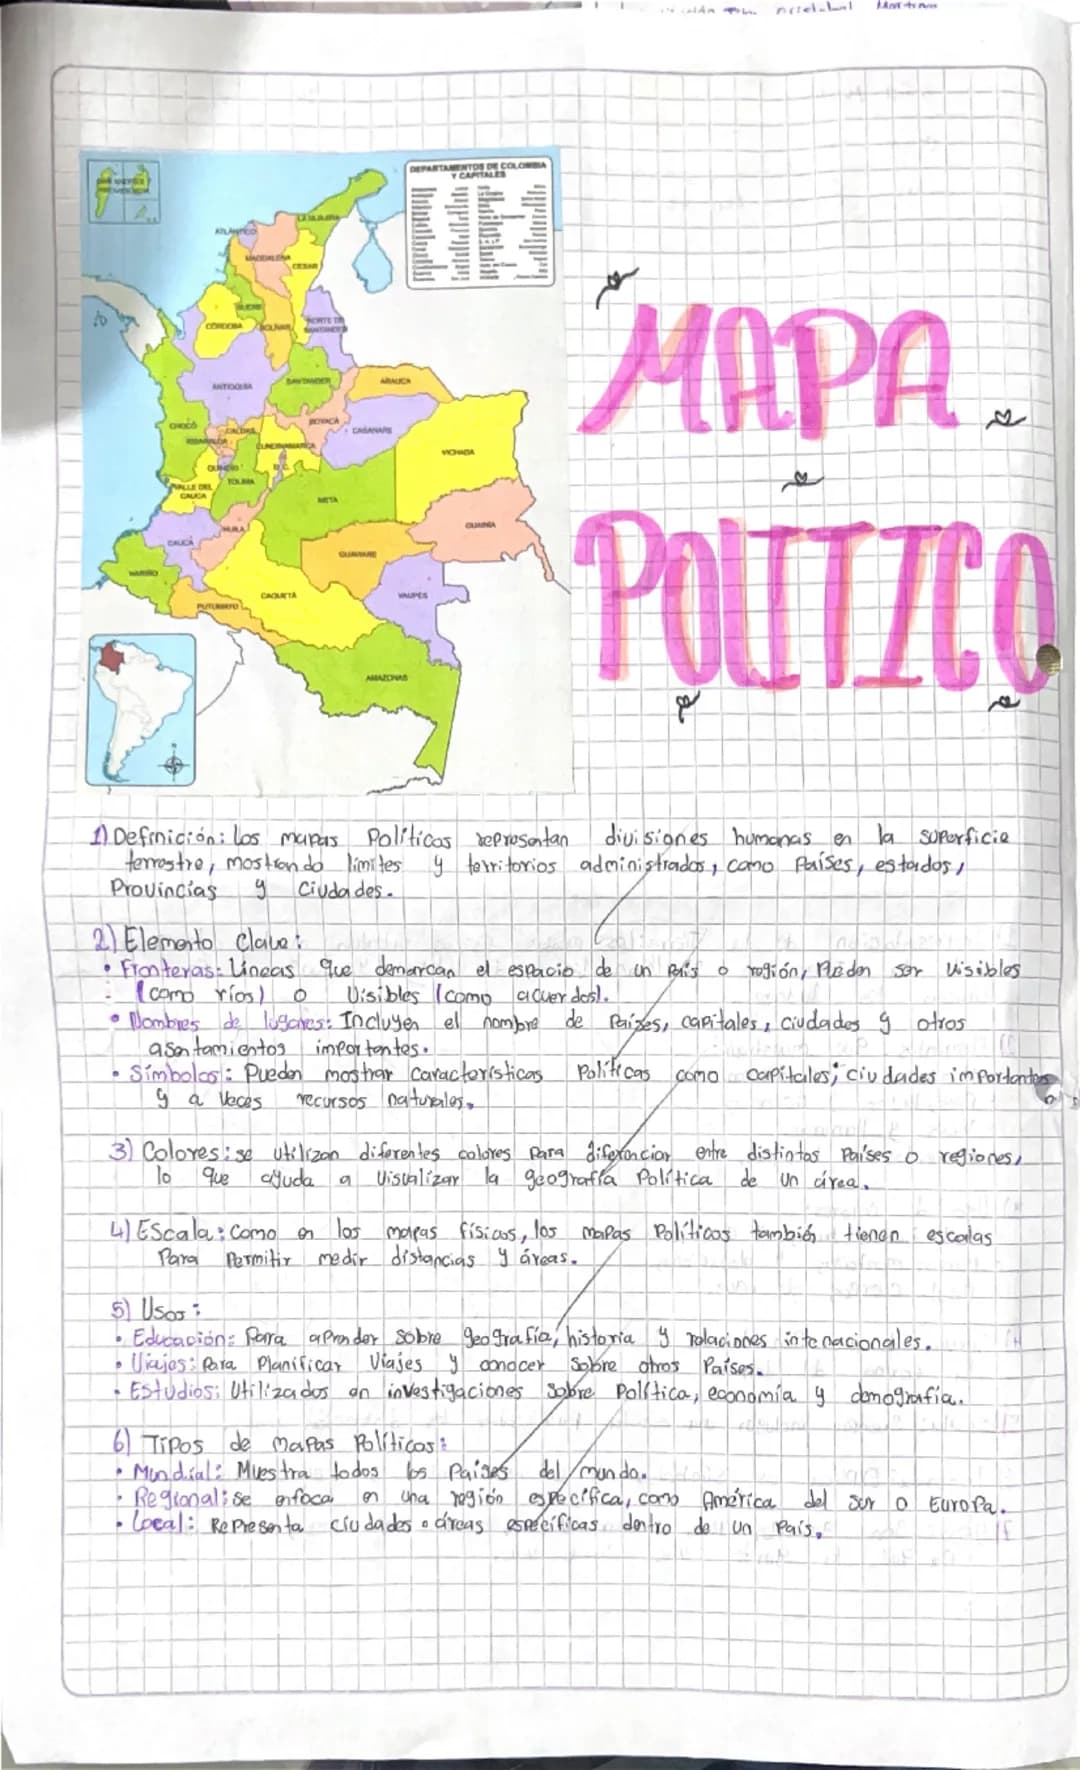 DEPARTAMENTOS DE COLOMBIA
Y CAPITALES
LA GUAJIRA
ATLÁNTICO
MAGDALENA
CESAR
SUCRE
CÓRDOBA
BOLÍVAR
NORTE DE
SANTANDER
ANTIOQUIA
SANTANDER
ARAUCA
CHOCÓ
BOYACÁ
CALDAS
CASANARE
RISARALDA
CUNDINAMARCA
VICHADA
QUINDIO
D.C.
TOLIMA
VALLE DEL
CAUCA
META
GUAINÍA
HUILA
CAUCA
GUAVIARE
NARIÑO
CAQUETÁ
VAUPES
PUTUMAYO
AMAZONAS
N
MAPA
POLITICO
1) Definición: Los mapas Políticos representan divisiones humanas en la superficie
terrestre, mostrando límites y territorios administrados, como Países, estados,
Provincias y Ciudades.
2) Elemento Clave:
• Fronteras: Líneas que demarcan el espacio de un País o región, Pueden ser Visibles
(como ríos) o Visibles (como acuerdos).
• Nombres de lugares: Incluyen el nombre de Paízes, capitales, ciudades y otros
asentamientos importantes.
• Símbolos: Pueden mostrar características Políticas como capitales, ciudades importantes
y a Veces recursos naturales.
3) Colores: se utilizan diferentes colores Para diferenciar entre distintos Países o regiones,
lo que ayuda a Visualizar la geografía Política de un área.
4) Escala: Como en los mapas físicos, los mapas Políticos también tienen escalas
Para Permitir medir distancias y áreas.
5) Usos:
• Educación: Para aprender sobre geografía, historia y relaciones intenacionales.
• Viajes: Para Planificar Viajes y conocer Sobre otros Países.
• Estudios: Utilizados en investigaciones Sobre Política, economía y demografía.
6) Tipos de mapas Políticos:
• Mundial: Muestra todos los Países del mundo.
• Regional: se enfoca en una región específica, como América del sur o Europa.
• Local: Representa ciudades o áreas específicas dentro de un País.